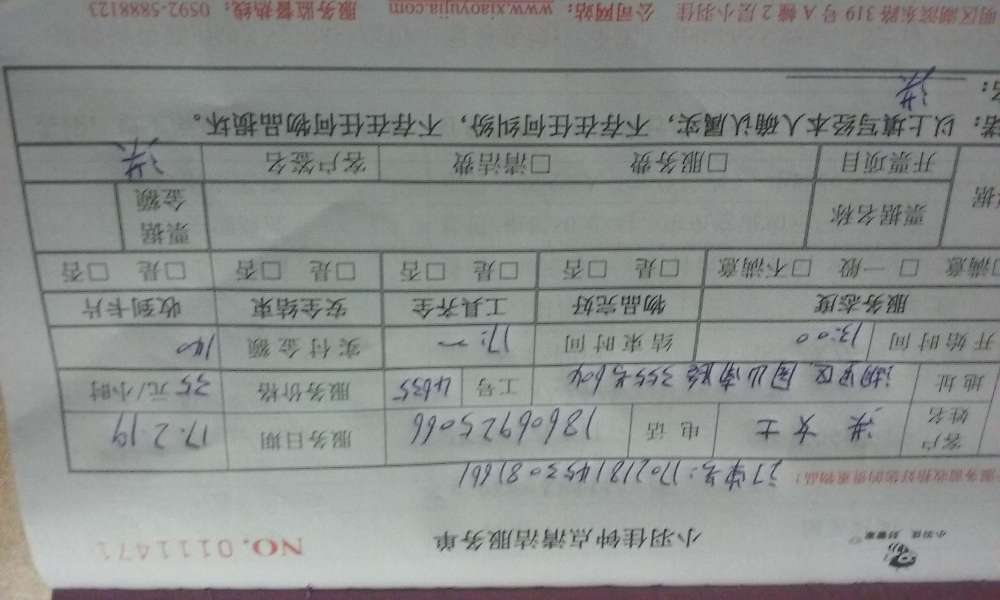 小羽佳 好管家
小羽佳钟点清洁服务单 NO.0111471
服务前收拾好您的贵重物品！ 订单号：170218145308166
客户姓名 洪女士 电话 18606925066 服务日期 17.2.19
地址 湖里区 南路355号604 工号 4635 服务价格 35元/小时
开始时间 13:00 结束时间 17: 实付金额 140
服务态度 物品完好 工具齐全 安全结束 收到卡片
□满意 □一般 □不满意 □是 □否 □是 □否 □是 □否 □是 □否
票据名称 票据金额
开票项目 □服务费 □清洁费 客户签名 洪
以上填写经本人确认属实，不存在任何纠纷，不存在任何物品损坏。
洪
明区湖滨东路319号A幢2层小羽佳 公司网站：www.xiaoyujia.com 服务监督热线：0592-5888123